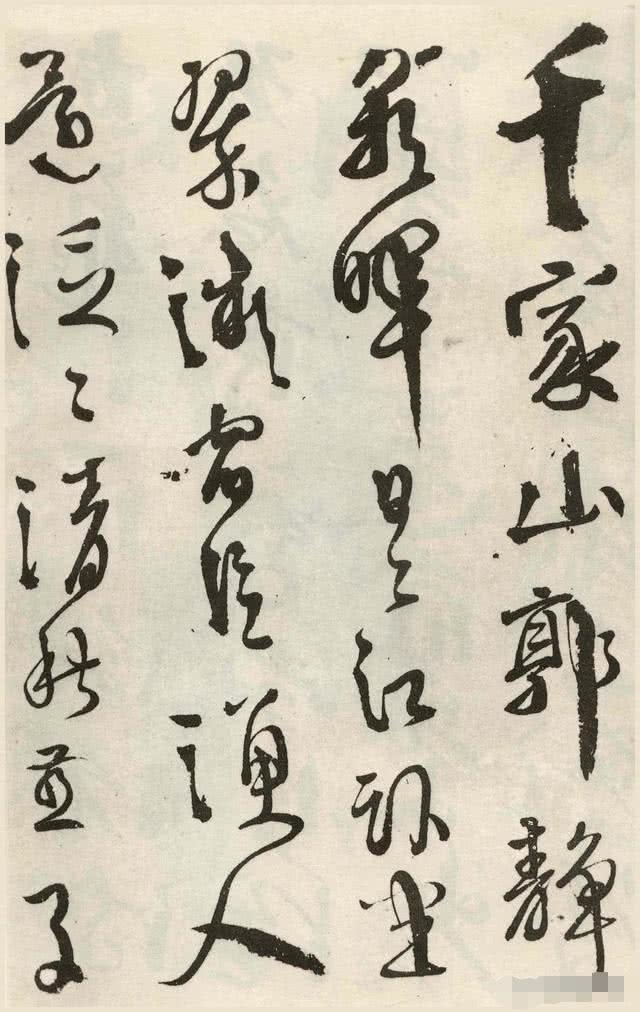 千家山郭靜
朝暉日〻江卧坐
翠微宿信漁人
還泛〻清秋燕子